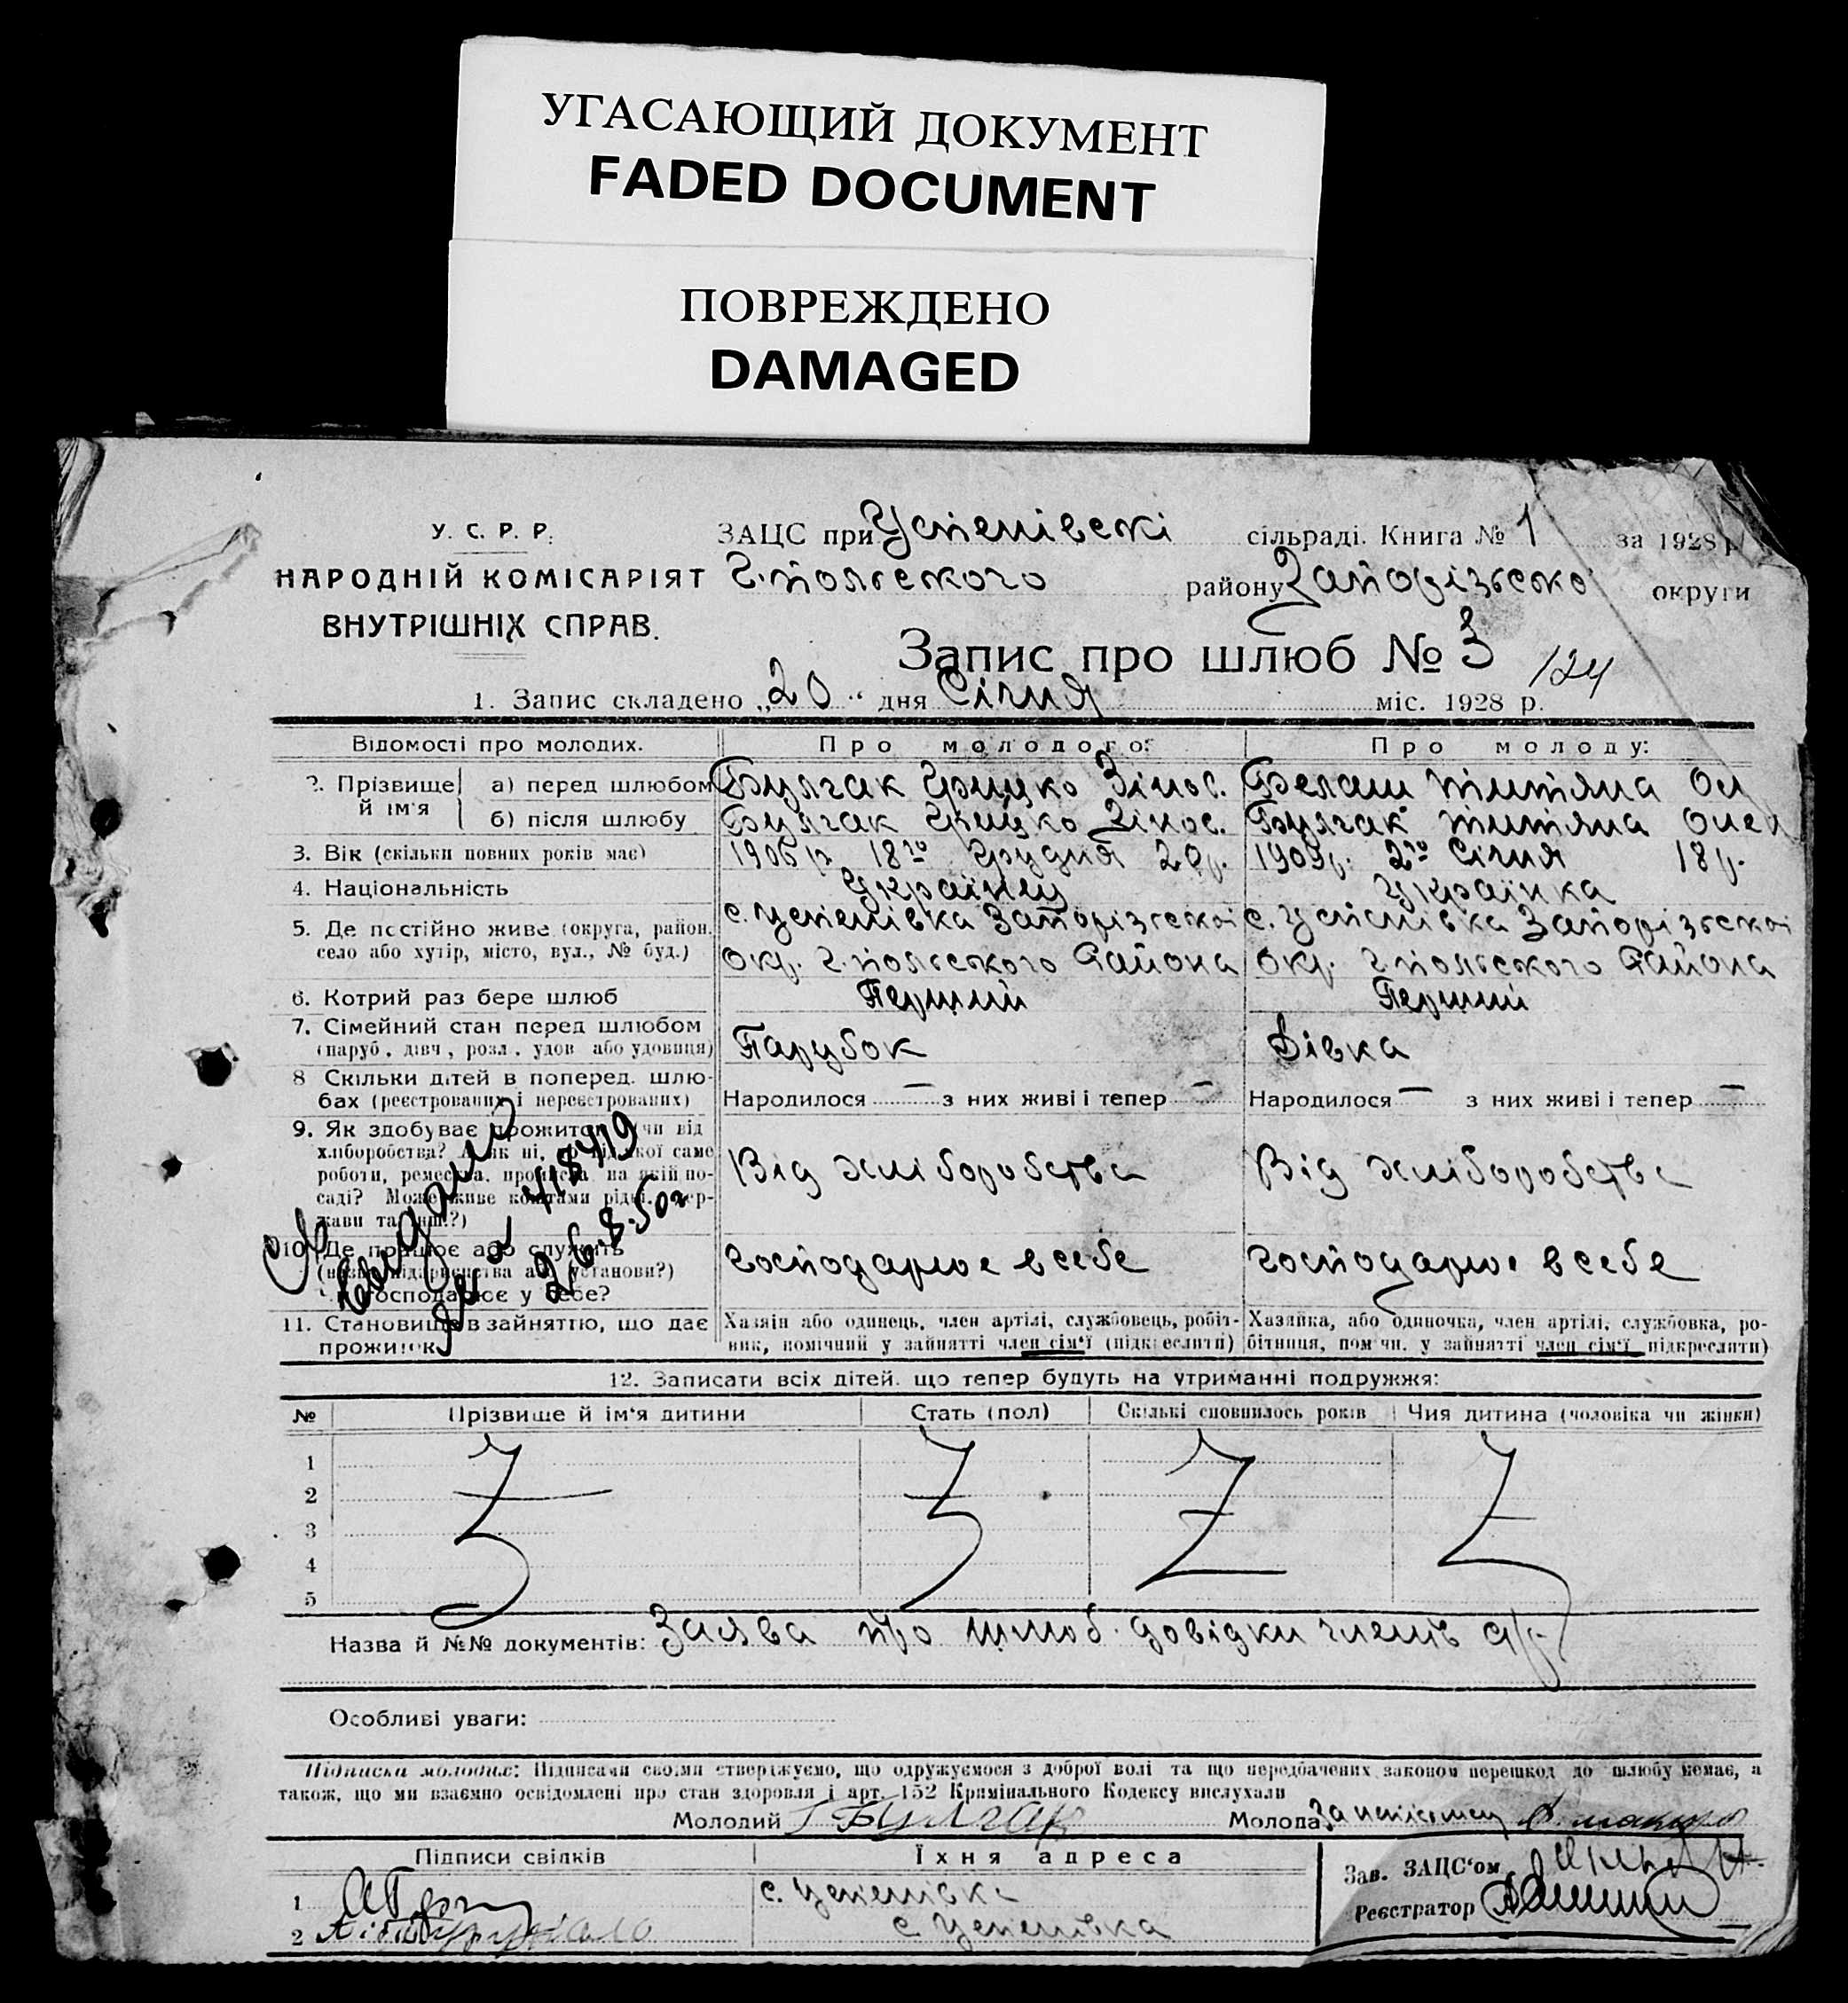 УГАСАЮЩИЙ ДОКУМЕНТ
FADED DOCUMENT
ПОВРЕЖДЕНО
DAMAGED
У. С. Р. Р.
НАРОДНІЙ КОМІСАРІЯТ
ВНУТРІШНІХ СПРАВ.
ЗАЦС при Успенівскі сільраді. Книга № 1 за 1928 р
Г.польского району Запорізьско округи
Запис про шлюб № 3 124
1. Запис складено „20“ дня Січня міс. 1928 р.
Відомості про молодих. Про молодого: Про молоду:
2. Прізвище й ім'я а) перед шлюбом Булгак Грицко Зінов. Белаш Титяна Ол
б) після шлюбу Булгак Грицко Зінов. Булгак Титяна Олек
3. Вік (скільки повних років має) 1906 р 18го Грудня 20р. 1909р. 2го Січня 18р.
4. Національність Українец Українка
5. Де постійно живе (округа, район, село або хутір, місто, вул., № буд.) с. Успенівка Запорізської с. Успенівка Запорізської
окр. Г.польского Района окр. Г.польского Района
6. Котрий раз бере шлюб Перший Перший
7. Сімейний стан перед шлюбом
(паруб., дівч., розл., удов. або удовиця) Парубок Дівка
8 Скільки дітей в поперед. шлю-
бах (реєстрованих і нереєстрованих) Народилося — з них живі і тепер — Народилося — з них живі і тепер —
9. Як здобуває прожиток (чи від
хліборобства? А як ні, то від якої саме
роботи, ремества, промисла, на якій по-
саді? Може живе коштами рідні, дер-
жави та инш.?) Від хліборобства Від хліборобства
10. Де працює або служить
(назва підприємства або установи?)
Чи господарює у себе? Господарює в себе Господарює в себе
26.8.50г
11. Становище в зайняттю, що дає
прожиток
Хазяїн або одинець, член артілі, службовець, робіт-
ник, помічний у зайнятті член сім'ї (підкреслити)
Хазяйка, або одиночка, член артілі, службовка, ро-
бітниця, помічн. у зайнятті член сім'ї підкреслити)
12. Записати всіх дітей, що тепер будуть на утриманні подружжя:
№ Прізвище й ім'я дитини Стать (пол) Скількі сповнилось років Чия дитина (чоловіка чи жінки)
1
2
3
4
5
Назва й №№ документів: Заява про шлюб. довідки членів с/р.
Особливі уваги:
Підписка молодих: Підписами своїми стверджуємо, що одружуємося з доброї волі та що передбачених законом перешкод до шлюбу немає, а
також, що ми взаємно освідомлені про стан здоровля і арт. 152 Кримінального Кодексу вислухали
Молодий Г Булгак Молода
Підписи свідків Їхня адреса
1 с. Успенівка
2 с Успенівка
Зав. ЗАЦС'ом
Реєстратор